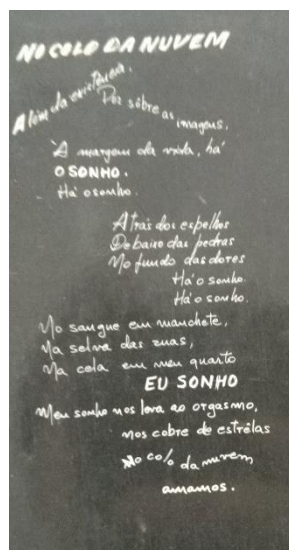 NO COLO DA NUVEM
Além da existência,
Por sôbre as imagens,
À margem da vida, há
O SONHO.
Há o sonho.
Atrás dos espelhos
Debaixo das pedras
No fundo das dores
Há o sonho.
Há o sonho.
No sangue em manchete,
Na selva das ruas,
Na cela em meu quarto
EU SONHO
Meu sonho nos leva ao orgasmo,
nos cobre de estrêlas
No colo da nuvem
amamos.